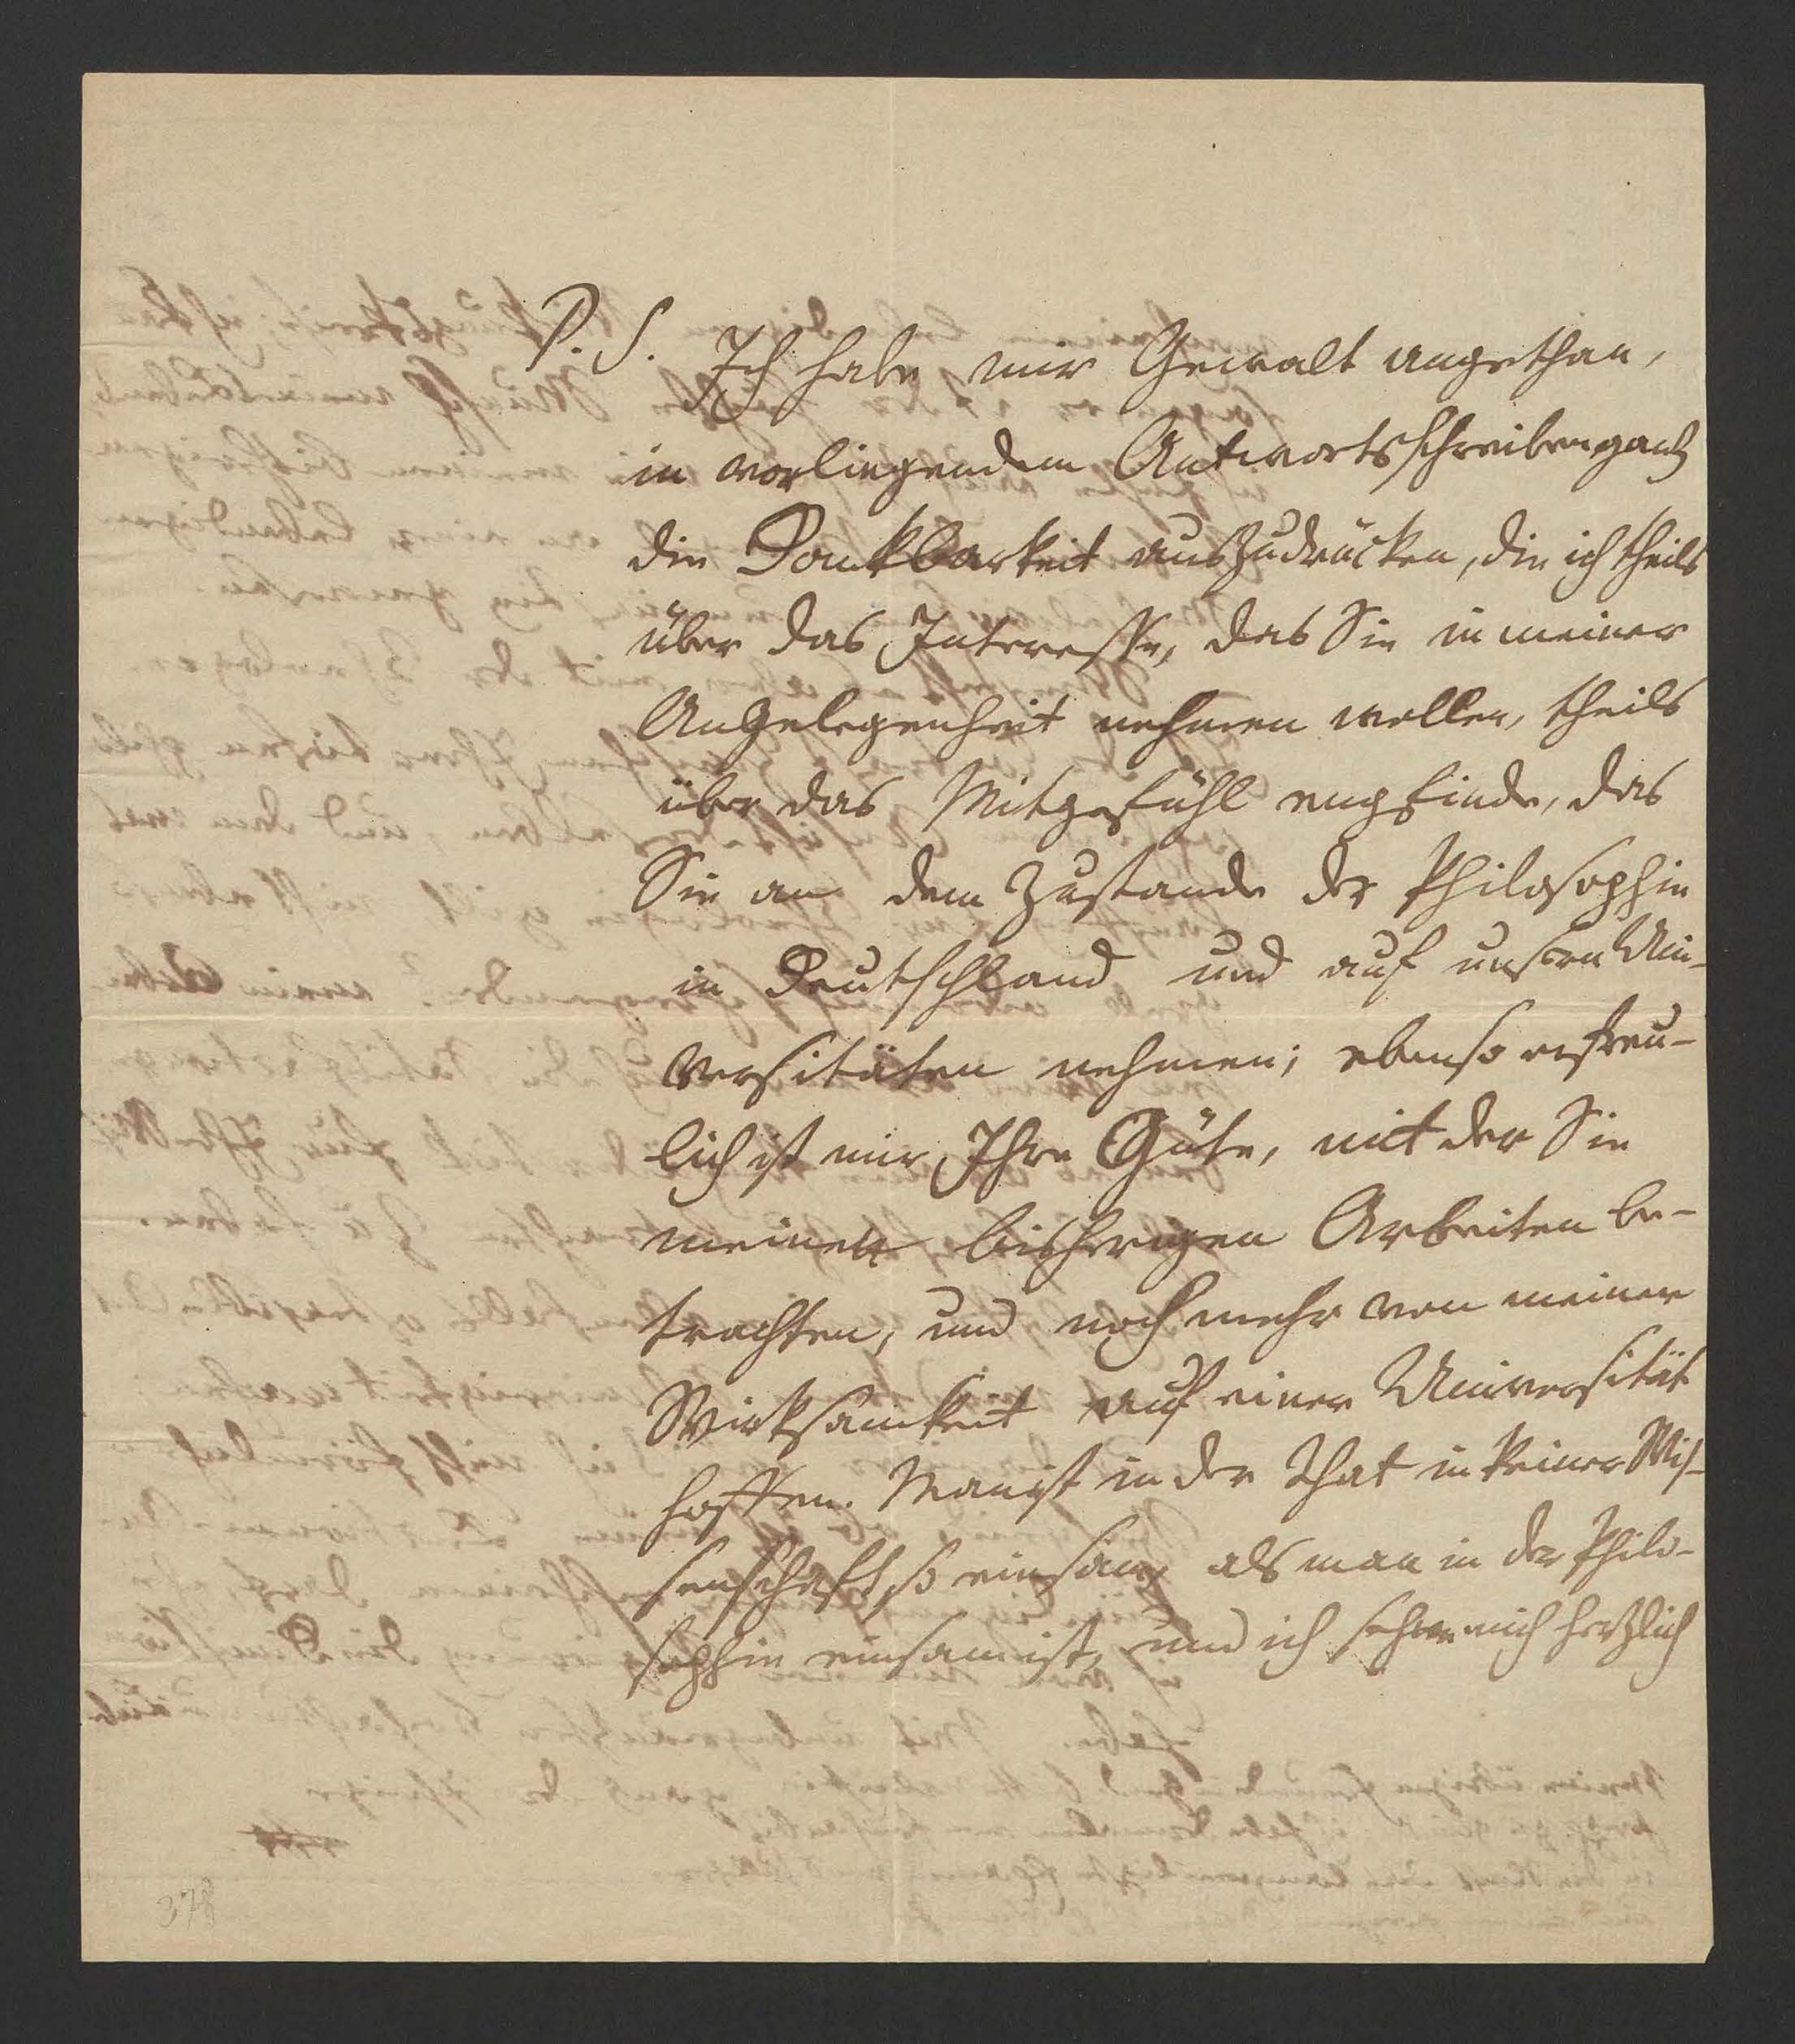 P. S. Ich habe mir Gewalt angethan,
in vorliegendem Antwortsschreiben ganz
die Dankbarkeit auszudrücken, die ich theils
über das Interesse, das Sie in meiner
Angelegenheit nehmen wollen, theils
über das Mitgefühl empfinde, das
Sie an dem Zustande der Philosophie
in Deutschland und auf unsern Uni-
versitäten nehmen; ebenso erfreu-
lich ist mir Ihre Güte, mit der Sie
meinen bisherigen Arbeiten be-
trachten, und noch mehr von meiner
Wirksamkeit auf einer Universität
hoffen. Man ist in der That in keiner Wis-
senschaft so einsam, als man in der Philo-
sophie einsam ist, und ich sehne mich herzlich
378